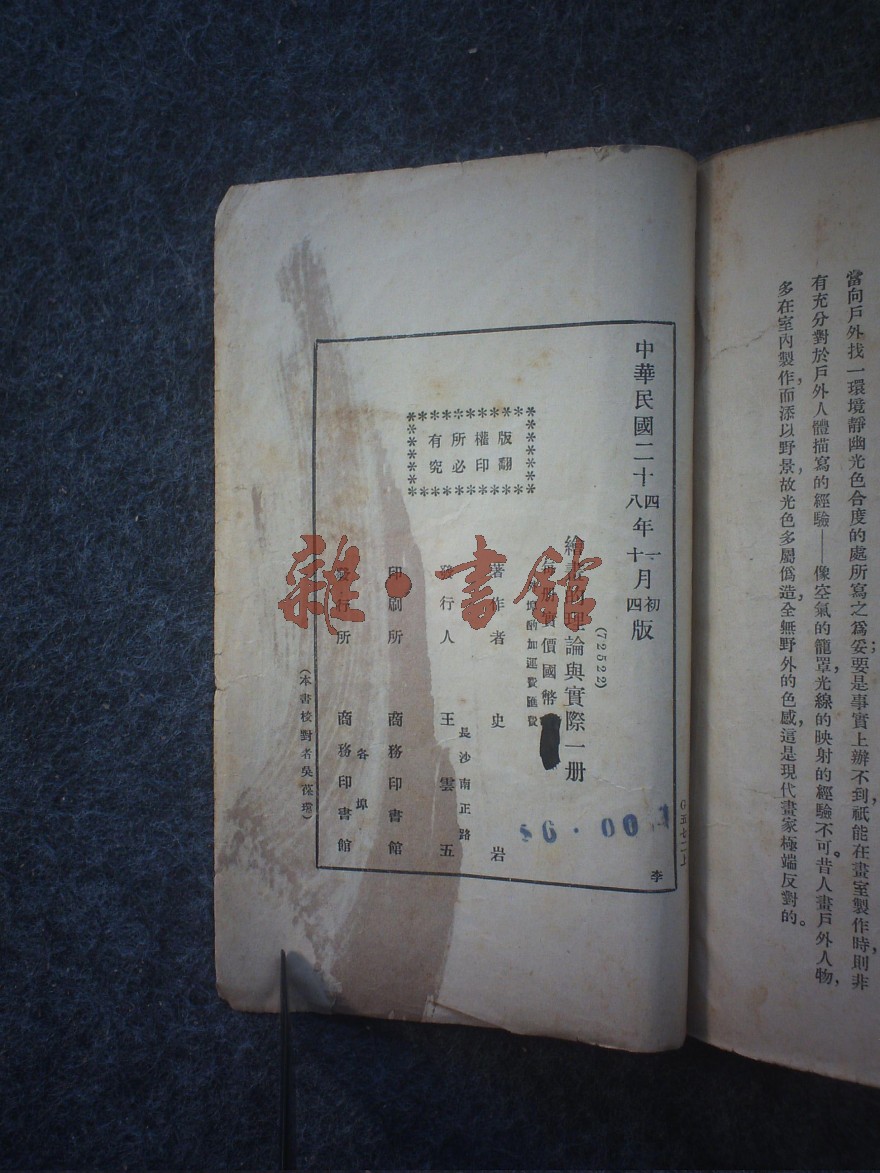 當向戶外找一環境靜幽光色合度的處所寫之爲妥；要是事實上辦不到，祇能在畫室製作時，則非
有充分對於戶外人體描寫的經驗——像空氣的籠罩，光線的映射的經驗不可。昔人畫戶外人物，
多在室內製作，而添以野景，故光色多屬僞造，全無野外的色感，這是現代畫家極端反對的。
中華民國二十四年一月初版
八 十 四
(72522)
繪畫的理論與實際一册
每册實價國幣
外埠酌加運費匯費
著作者 史岩
長沙南正路
發行人 王雲五
印刷所 商務印書館
各埠
發行所 商務印書館
(本書校對者吳葆
版權所有
翻印必究
李
雜·書館